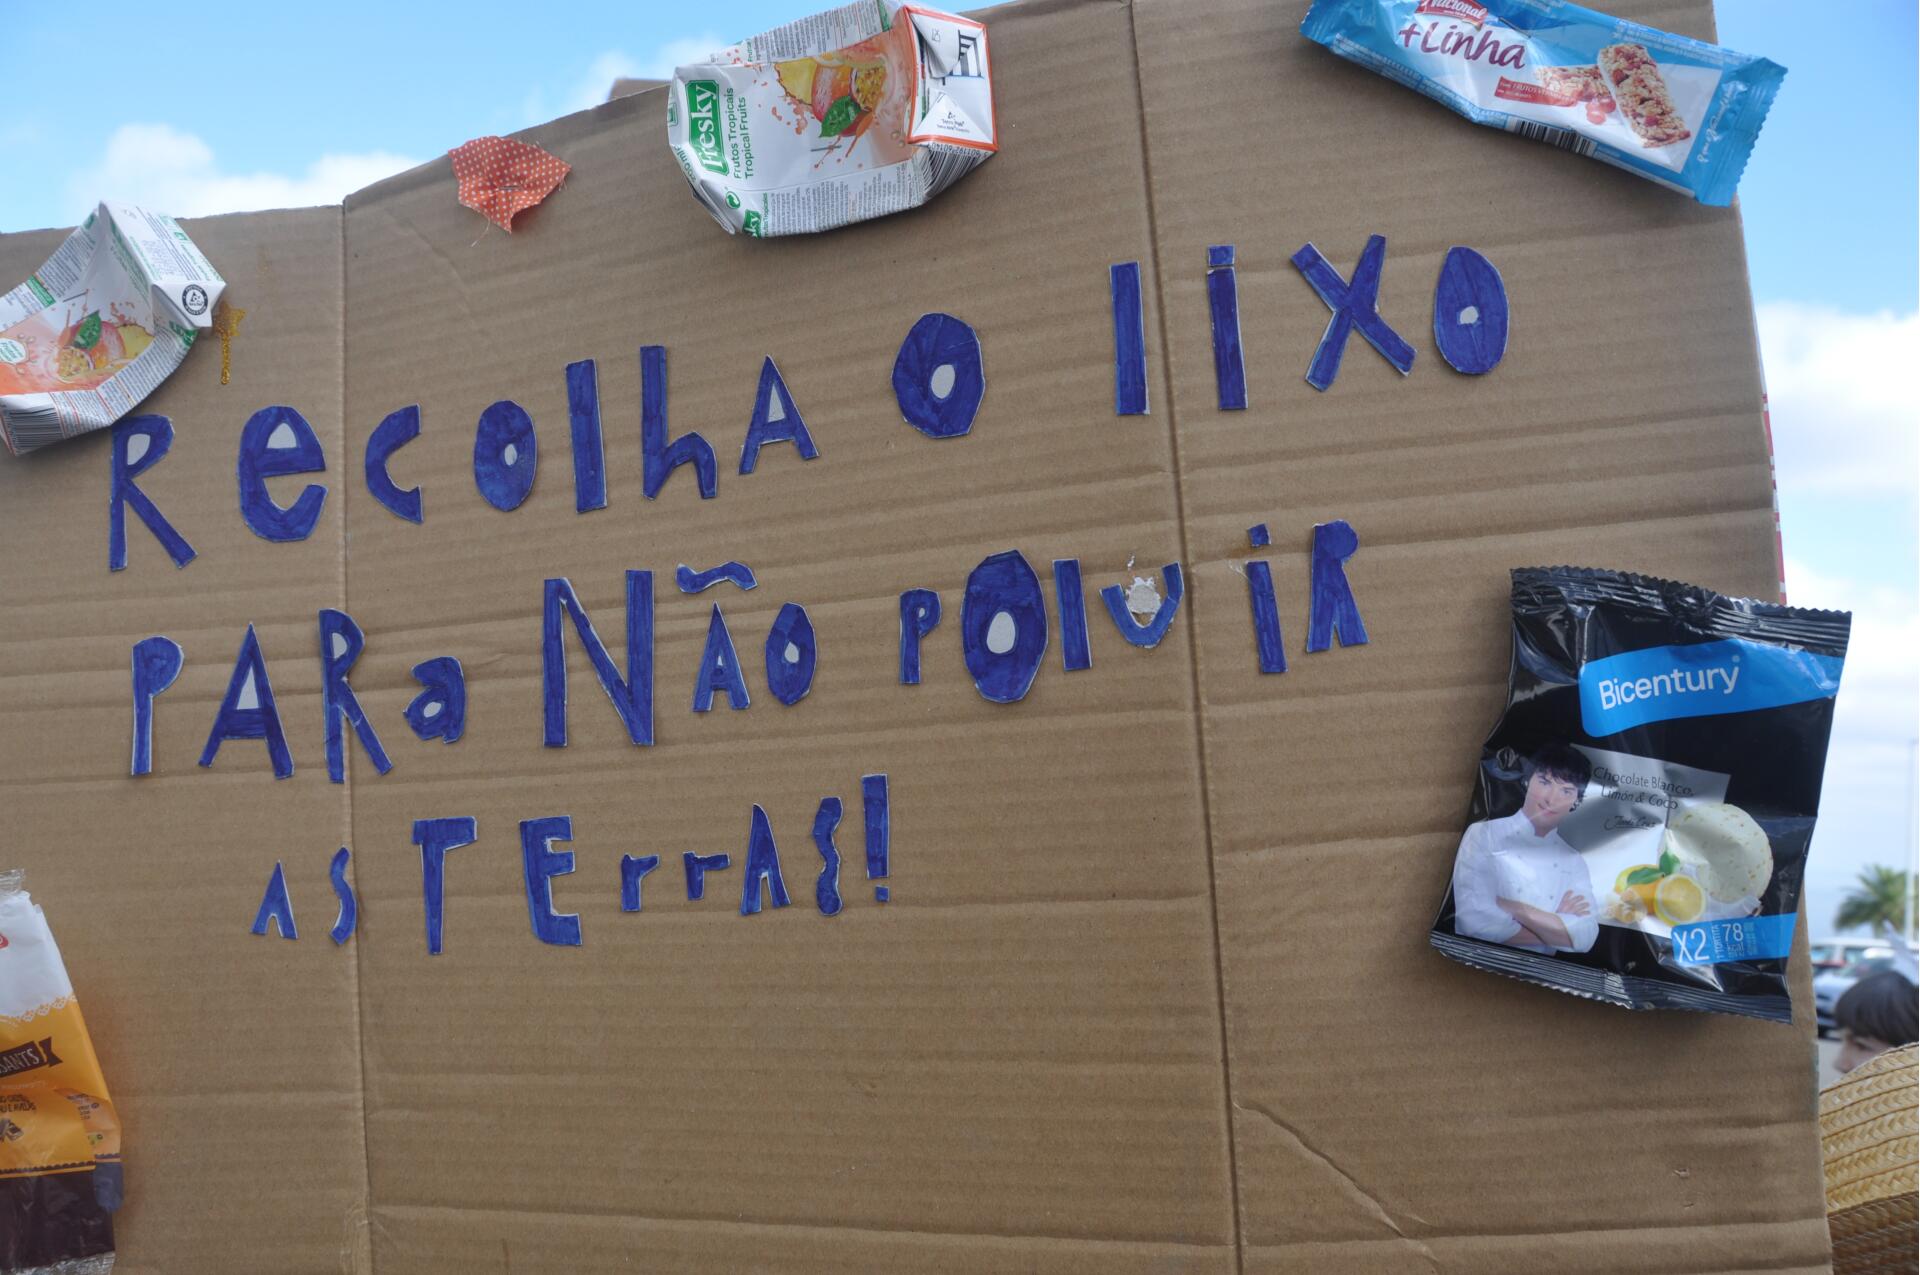 Nacional
+Linha
Fresky
Frutos Tropicais
Tropical Fruits
RecolhA O lixo
PARa NÃO POluiR
AS TErrAS!
Bicentury
Chocolate Blanco,
Limón & Coco
X2 78
kcal
SANTS